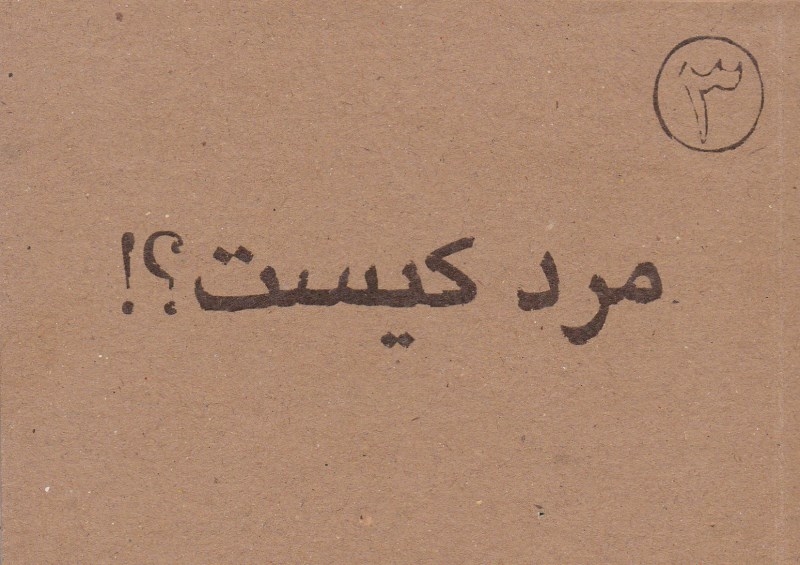 ۳
مرد کیست؟!